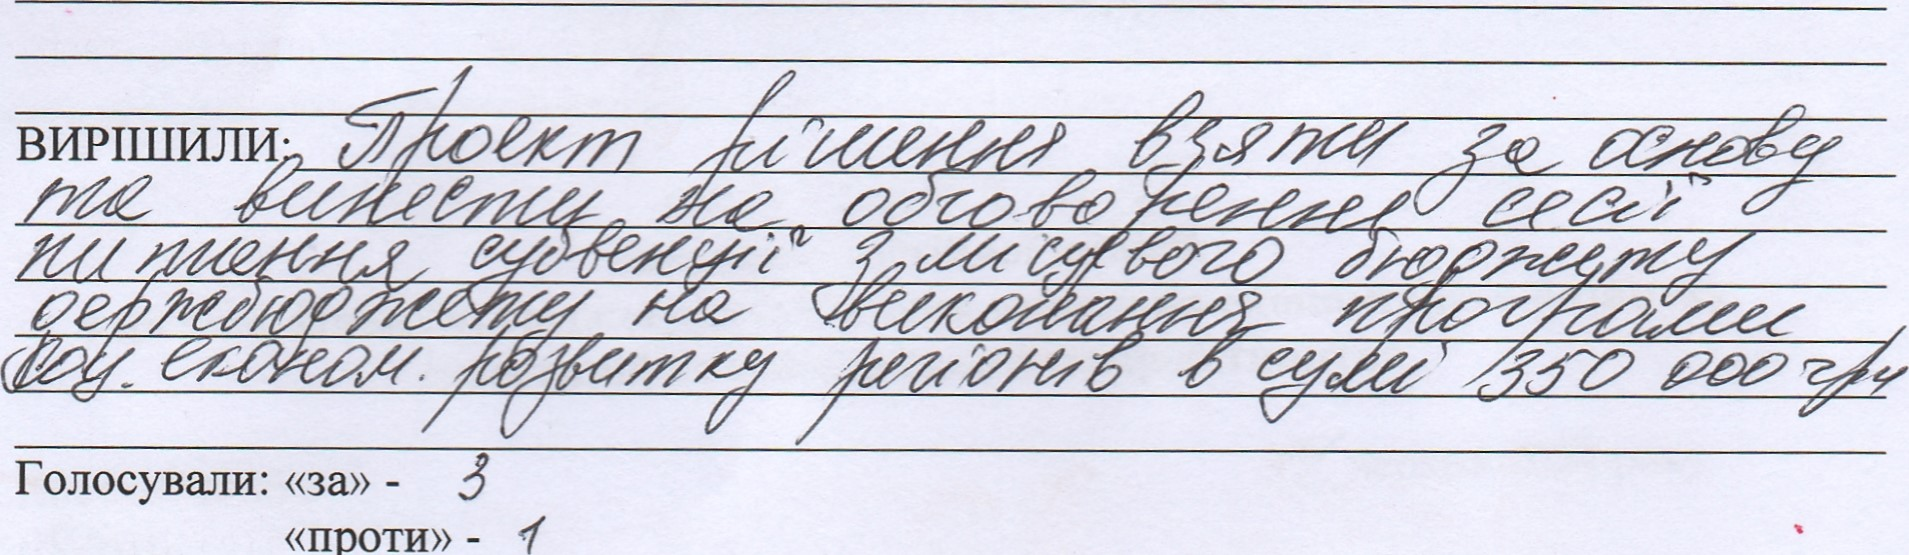 ВИРІШИЛИ: Проект рішення взяти за основу
та винести на обговорення сесії
питання субвенції з місцевого бюджету
держбюджету на виконання програми
соц. економ. розвитку регіонів в сумі 350 000 грн
Голосували: «за» - 3
«проти» - 1